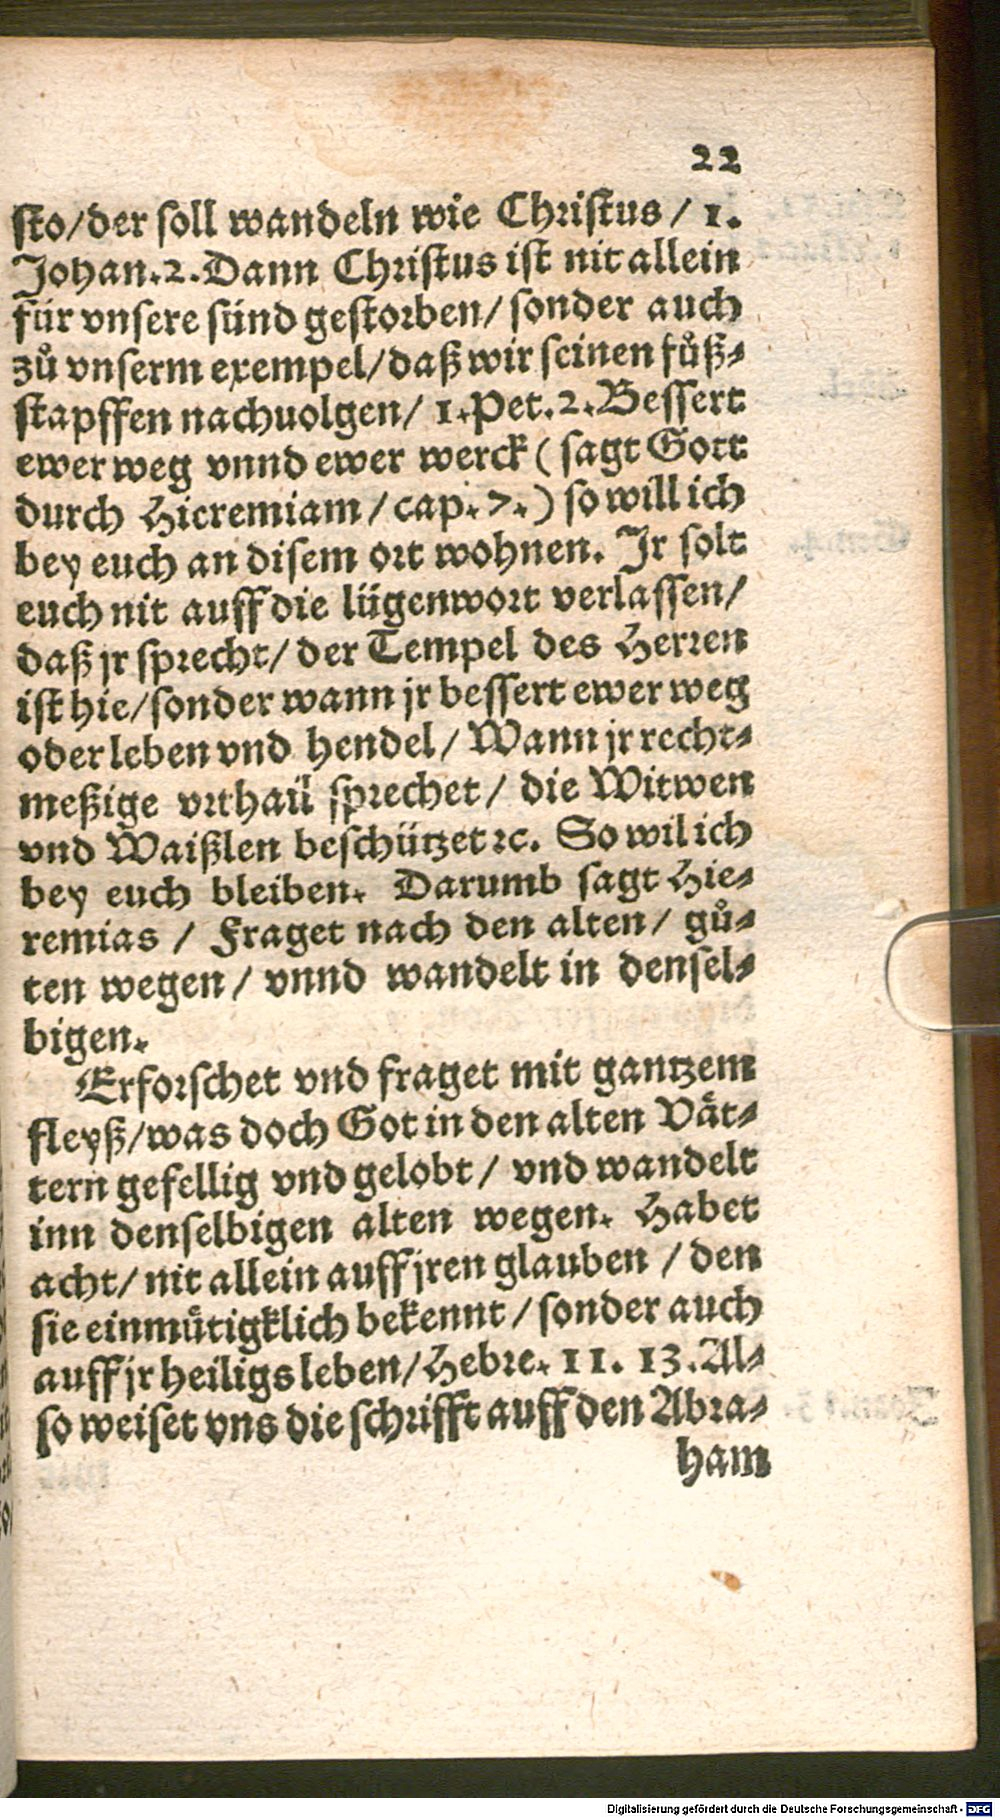 22
sto/der soll wandeln wie Christus / 1.
Johan.2.Dann Christus ist nit allein
für vnsere sünd gestorben/ sonder auch
zů vnserm exempel/daß wir seinen fůß-
stapffen nachuolgen/ 1.Pet.2.Bessert
ewer weg vnnd ewer werck ( sagt Gott
durch Hieremiam / cap. 7. ) so will ich
bey euch an disem ort wohnen. Jr solt
euch nit auff die lügenwort verlassen/
daß jr sprecht/ der Tempel des Herren
ist hie/sonder wann jr bessert ewer weg
oder leben vnd hendel/ Wann jr recht-
meßige vrthail sprechet/ die Witwen
vnd Waißlen beschützet ꝛc. So wil ich
bey euch bleiben. Darumb sagt Hie-
remias / Fraget nach den alten/ gů-
ten wegen/ vnnd wandelt in densel-
bigen.
Erforschet vnd fraget mit gantzem
fleyß/was doch Got in den alten Vät-
tern gefellig vnd gelobt/ vnd wandelt
inn denselbigen alten wegen. Habet
acht/ nit allein auff jren glauben / den
sie einmütigklich bekennt / sonder auch
auff jr heiligs leben/Hebre. 11. 13. Al-
so weiset vns die schrifft auff den Abra-
ham
Digitalisierung gefördert durch die Deutsche Forschungsgemeinschaft - DFG